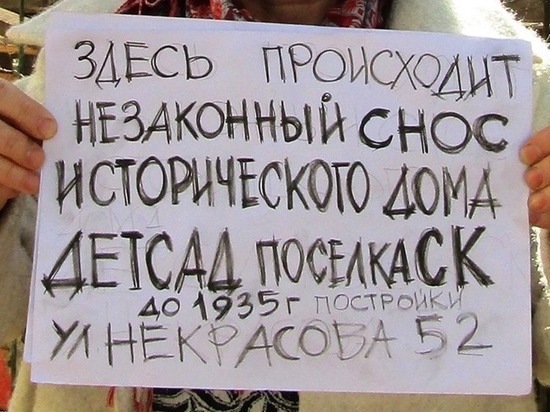 ЗДЕСЬ ПРОИСХОДИТ
НЕЗАКОННЫЙ СНОС
ИСТОРИЧЕСКОГО ДОМА
ДЕТСАД ПОСЕЛКА СК
ДО 1935 г ПОСТРОЙКИ
УЛ НЕКРАСОВА 52